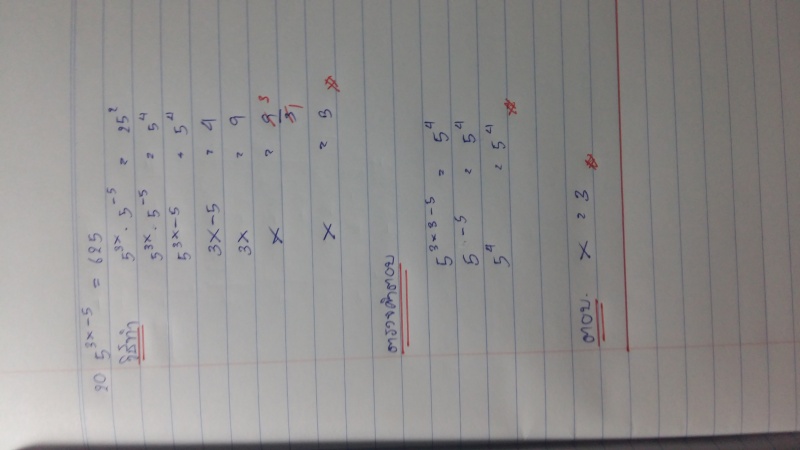 20 5^{3x-5} = 625
วิธีทำ 5^{3x} · 5^{-5} = 25^2
5^{3x} · 5^{-5} = 5^4
5^{3x-5} = 5^4
3x-5 = 4
3x = 9
x = 9/3 3/1
x = 3
ตรวจคำตอบ
5^{3x3-5} = 5^4
5^{-5} = 5^4
5^4 = 5^4
ตอบ. x = 3